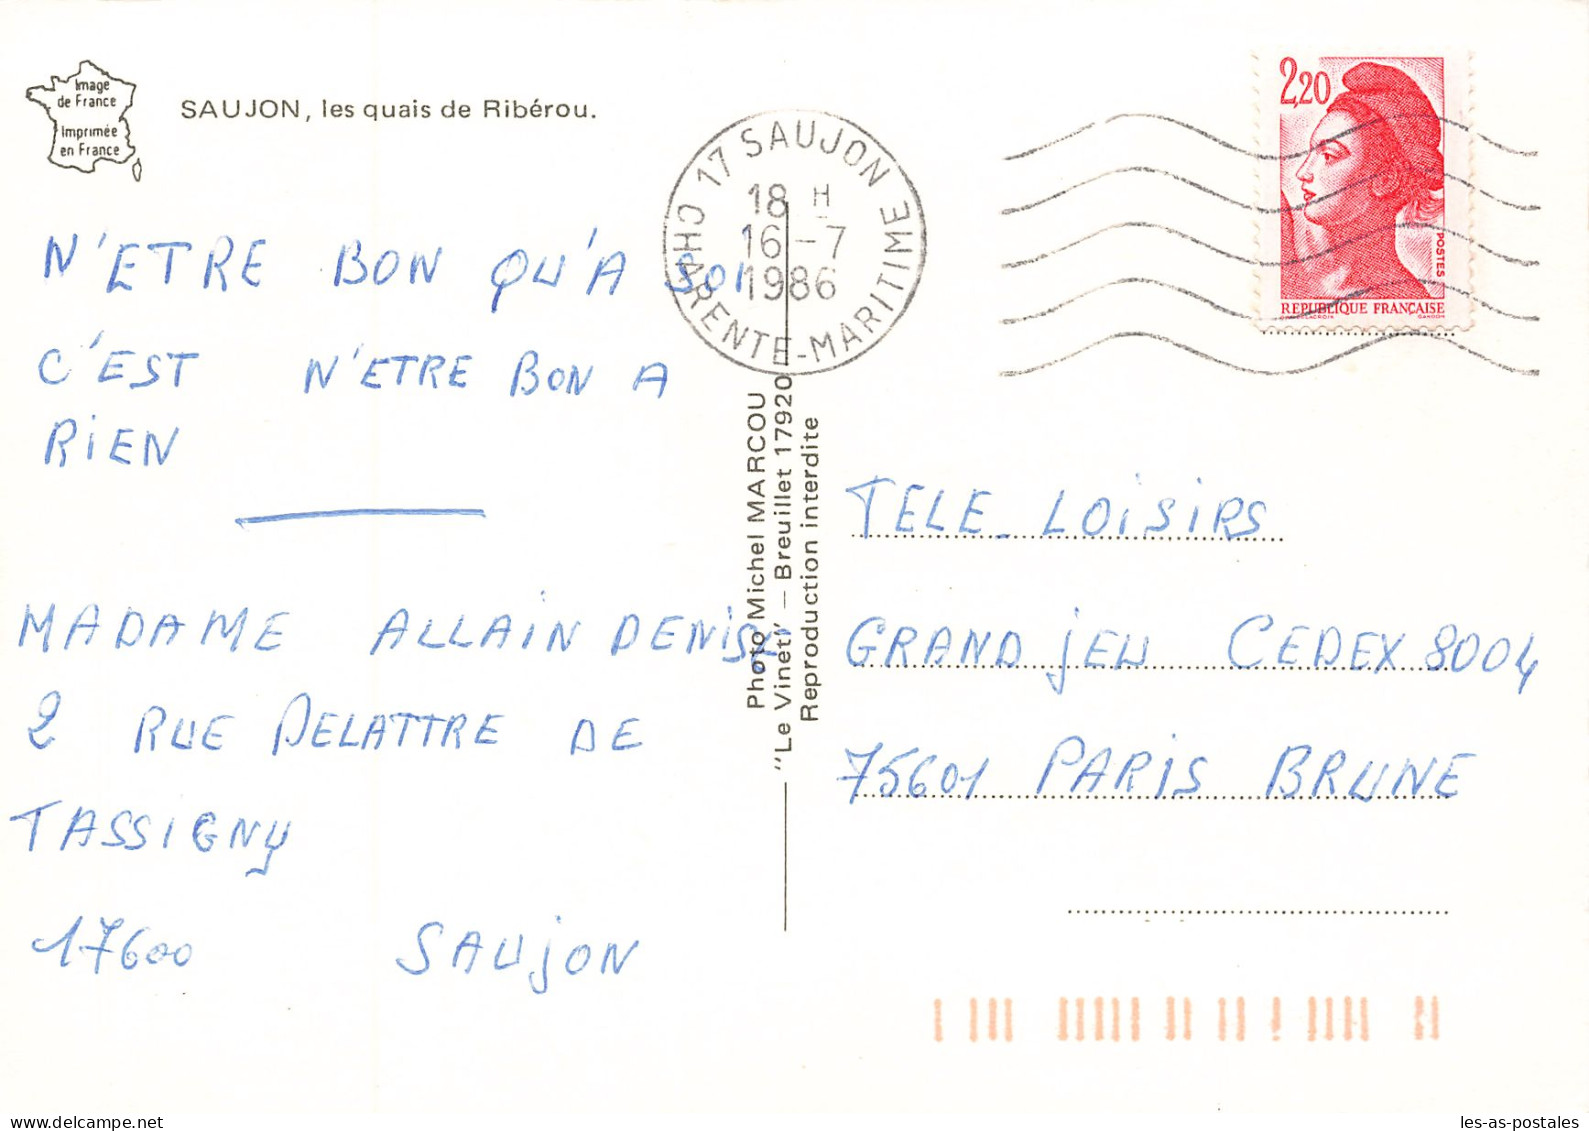 Image
de France
Imprimée
en France
SAUJON, les quais de Ribérou.
17 SAUJON
18 H
16 -7
1986
CHARENTE-MARITIME
2,20
POSTES
REPUBLIQUE FRANÇAISE
GANDON
N'ETRE BON QU'A SOI
C'EST N'ETRE BON A
RiEN
MADAME ALLAiN DENiSE
2 RUE DELATTRE DE
TASSIGNY
17600 SAUjON
Photo Michel MARCOU
"Le Vineti' – Breuillet 17920
Reproduction interdite
TELE_LOiSiRS
GRAND jEU CEDEX 8004
75601 PARiS BRUNE
les-as-postales
delcampe.net